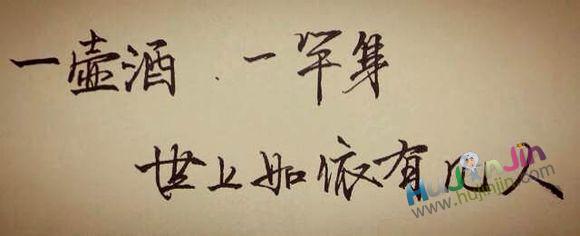 一壶酒 . 一竿隼
世上如侬有几人
HuiJinJin
www.hujinjin.com